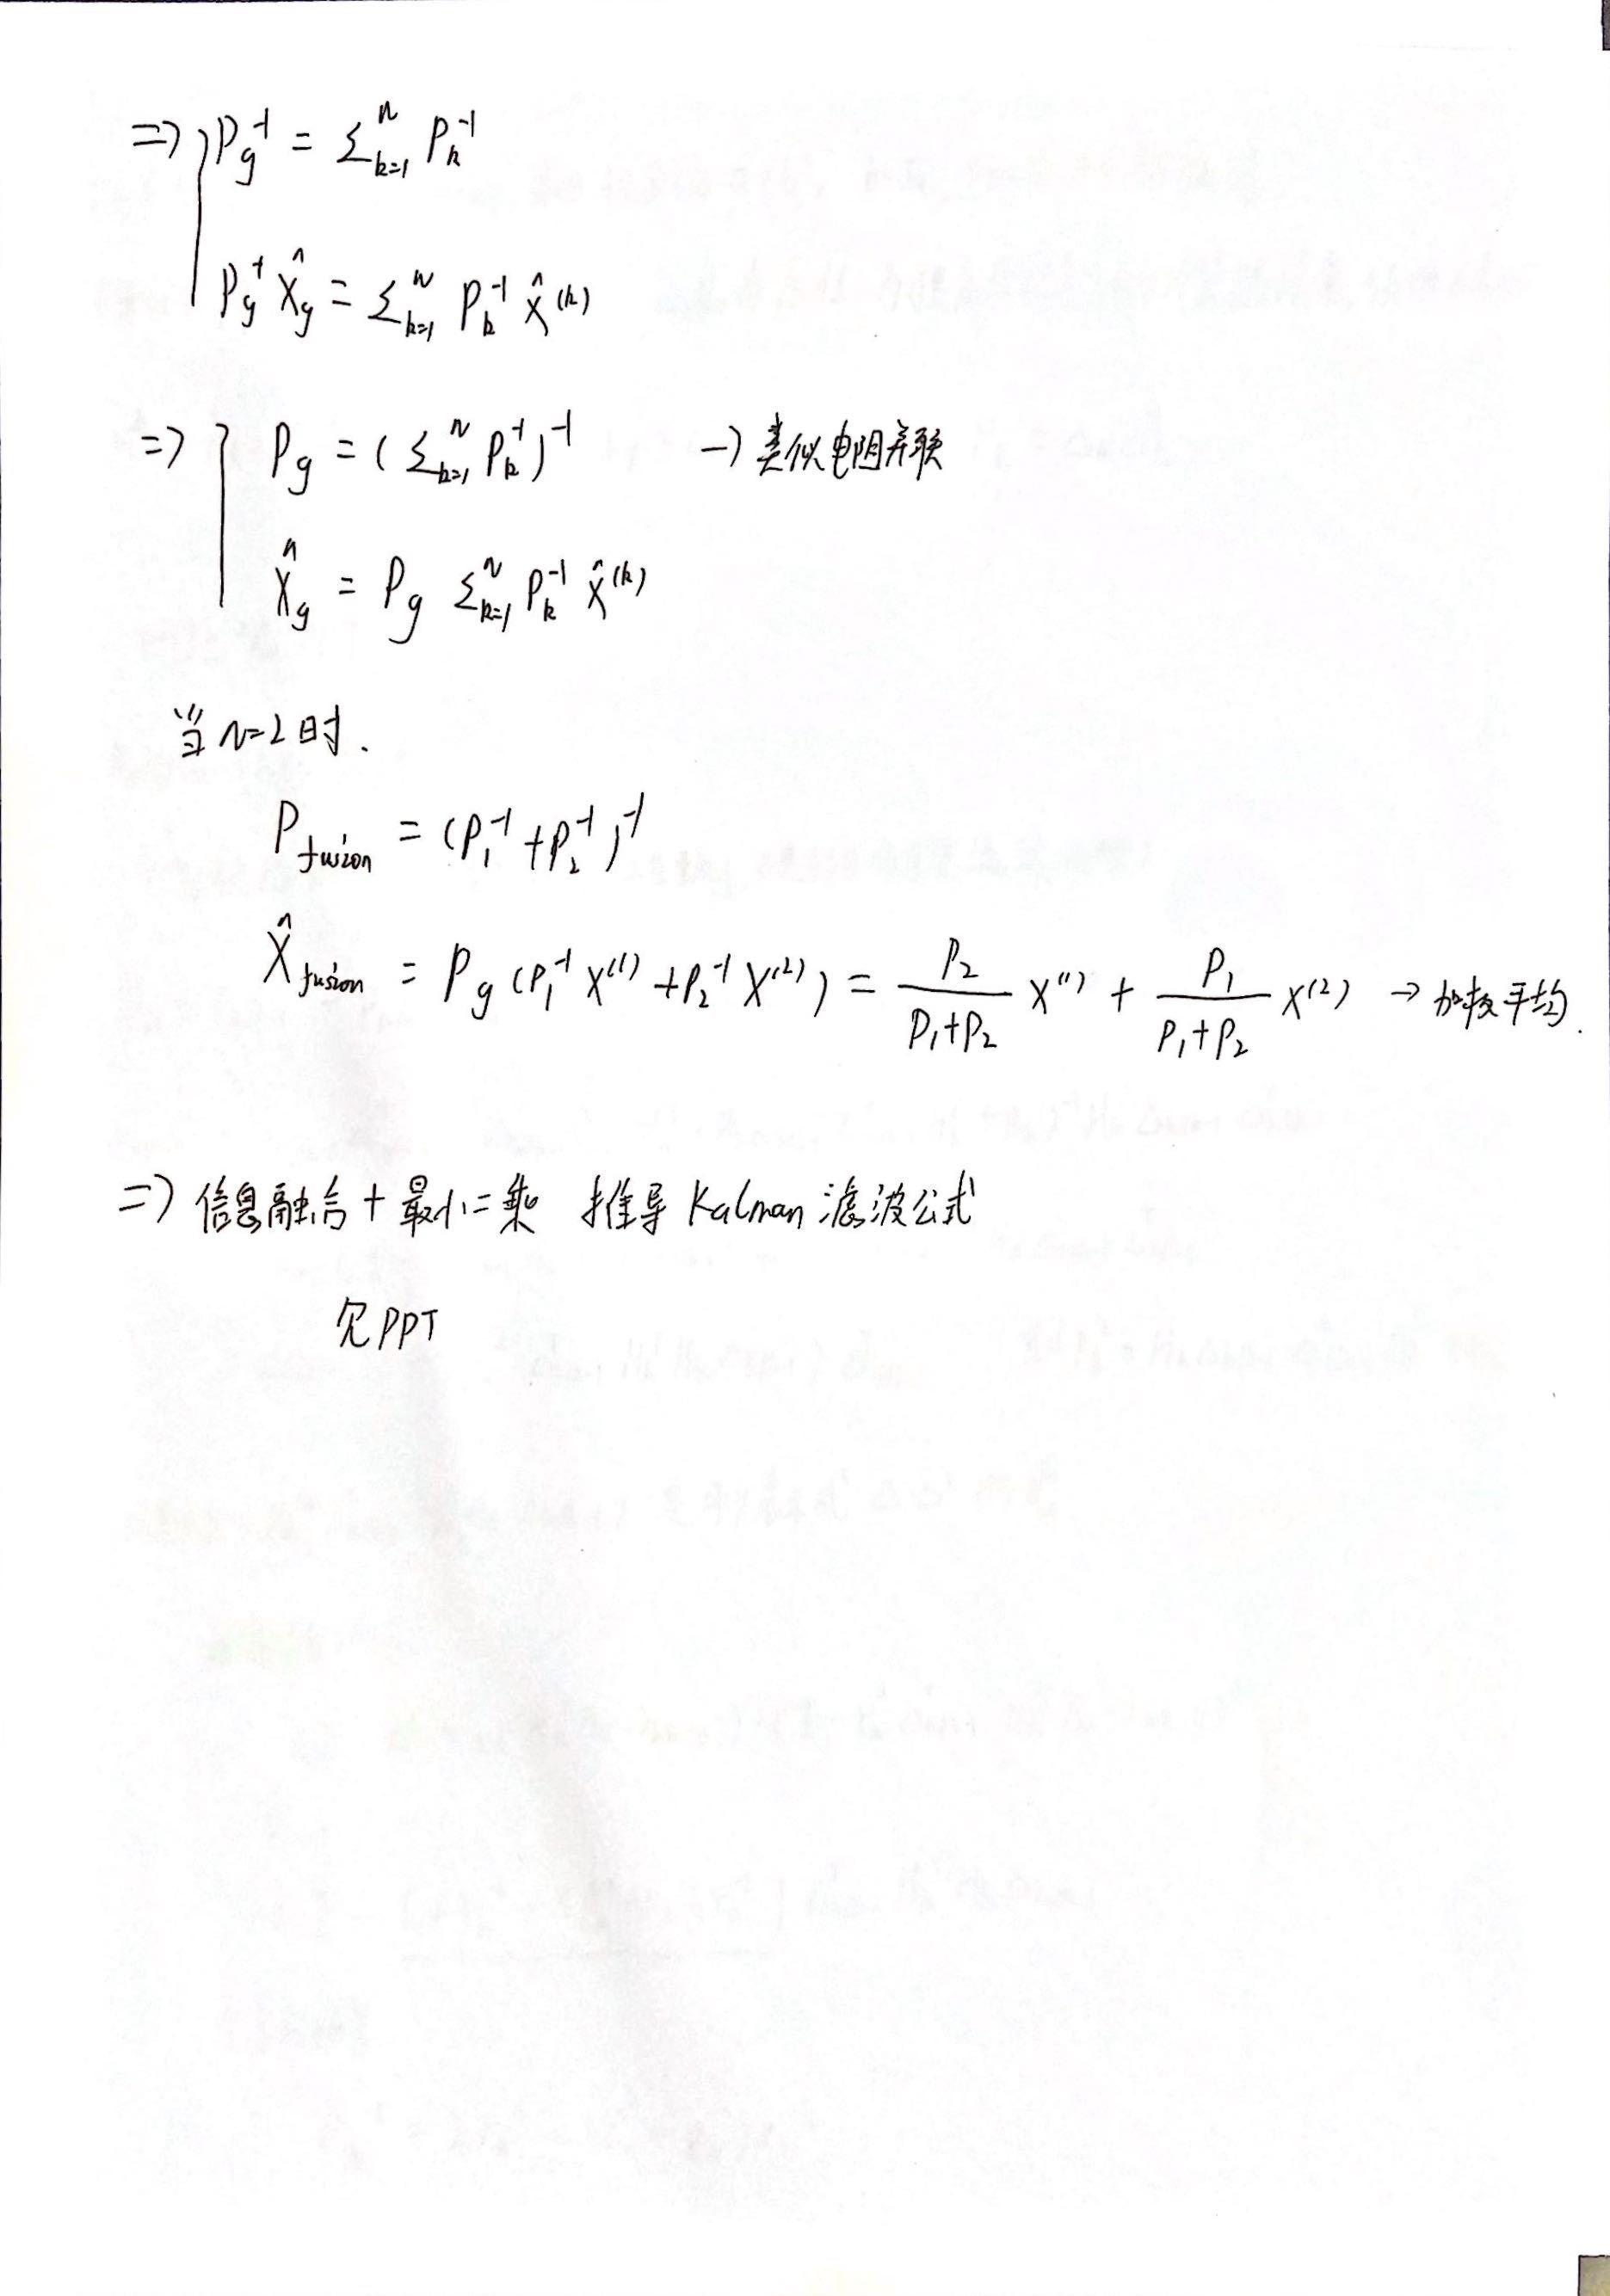 ⇒ { P_g^{-1} = Σ_{k=1}^{n} P_k^{-1}
P_g^{-1} X̂_g = Σ_{k=1}^{n} P_k^{-1} X̂^{(k)}
⇒ { P_g = (Σ_{k=1}^{n} P_k^{-1})^{-1} → 类似电阻并联
X̂_g = P_g Σ_{k=1}^{n} P_k^{-1} X̂^{(k)}
当 n=2 时.
P_{fusion} = (P_1^{-1} + P_2^{-1})^{-1}
X̂_{fusion} = P_g (P_1^{-1} X^{(1)} + P_2^{-1} X^{(2)}) = \frac{P_2}{P_1+P_2} X^{(1)} + \frac{P_1}{P_1+P_2} X^{(2)} → 加权平均.
⇒ 信息融合 + 最小二乘 推导 Kalman 滤波公式
PPT